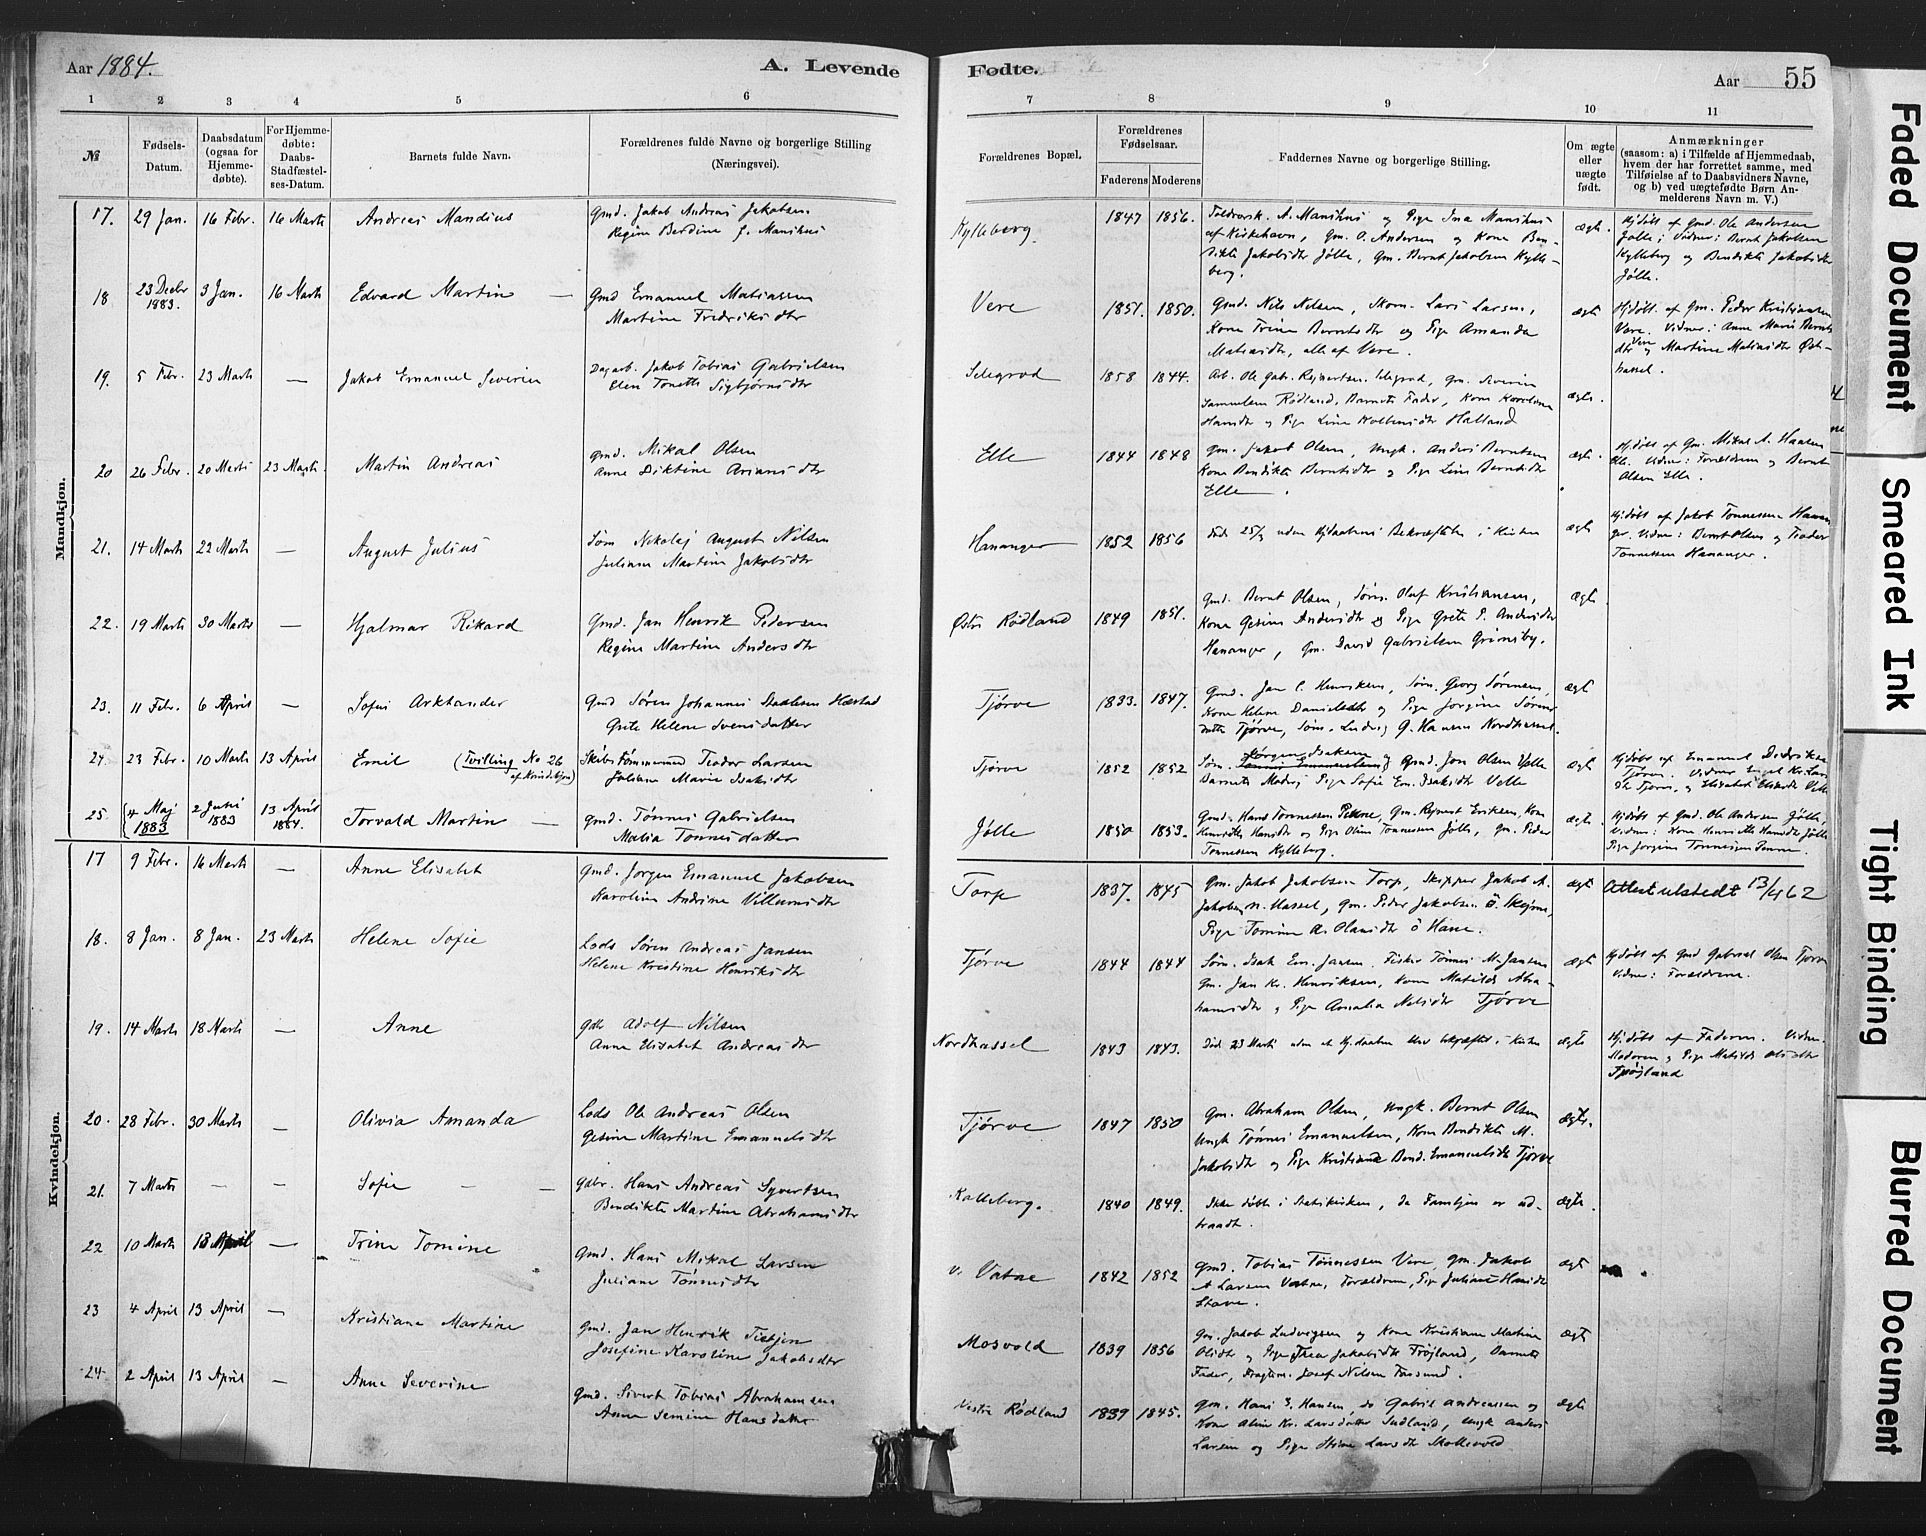 Aar 1884.
A. Levende
Fødte.
Aar 55
1 2 3 4 5 6 7 8 9 10 11
№
Fødsels-
Datum.
Daabsdatum
(ogsaa for
Hjemme-
døbte).
For Hjemme-
døbte:
Daabs-
Stadfæstel-
ses-Datum.
Barnets fulde Navn.
Forældrenes fulde Navne og borgerlige Stilling
(Næringsvei).
Forældrenes Bopæl.
Forældrenes
Fødselsaar.
Faderens Moderens
Faddernes Navne og borgerlige Stilling.
Om ægte
eller
uægte
født.
Anmærkninger
(saasom: a) i Tilfælde af Hjemmedaab,
hvem der har forrettet samme, med
Tilføielse af to Daabsvidners Navne,
og b) ved uægtefødte Børn An-
melderens Navn m. V.)
Mandkjøn.
17. 29 Jan. 16 Febr. 16 Marts Andreas Mandius
Gmd. Jakob Andreas Jakobsen
Regine Berdine f. Manihus
Kylleberg. 1847 1856.
Toldvarsk. A. Manihus og Pige Ina Manihus
af Kirkehavn, Gm. O. Andersen og Kone Ben-
dikte Jakobsdtr Jølle, Gm. Bernt Jakobsen Kylle-
berg.
ægte.
Hjdøbt af Gmd. Ole Andersen
Jølle; Vidner: Bernt Jakobsen
Kylleberg og Bendikte Jakobsdtr
Jølle.
18 23 Decbr 1883. 3 Jan. 16 Marts Edvard Martin
Gmd Emanuel Matiassen
Martine Fredriksdtr
Vere 1851. 1850.
Gmd. Nils Nilsen, Skom. Lars Larsen,
Kone Trine Berntsdtr og Pige Amanda
Matiasdtr, alle af Vere.
ægte
Hjdøbt af Gm. Peder Kristiansen
Vere. Vidner: Anne Marie Bernts
dtr Vere og Martine Matiasdtr Øst-
hassel.
19. 5 Febr. 23 Marts — Jakob Emanuel Severin
Dagarb. Jakob Tobias Gabrielsen
Elen Tonette Sigbjørnsdtr
Selegrod 1858 1844.
Arb. Ole Gab. Reinertsen Selegrod, Gm. Severin
Samuelsen Rødland, Barnets Fader, Kone Karoline
Hansdtr og Pige Line Halland
ægte.
20 26 Febr. 20 Marts 23 Marts. Martin Andreas
Gmd. Mikal Olsen
Anne Diktine Arianisdtr
Elle 1844 1848
Gm. Jakob Olsen, Ungk. Anders Berntsen
Kone Bendikte Berntsdtr og Pige Line Berntsdtr
Elle.
ægte.
Hjdøbt af Gm. Mikal A. Hansen
Elle. Vidner: Forældrene og Bernt
Olsen Elle.
21. 14 Marts 22 Marts — August Julius
Søm Nikolaj August Nilsen
Juliane Martine Jakobsdtr
Hananger 1852 1856
Død 25/3 uden Hjdaabens Bekræftelse i Kirken
ægte
Hjdøbt af Jakob Tønnessen Hanan
ger. Vidner: Bernt Olsen og Teodor
Tønnessen Hananger.
22. 19 Marts 30 Marts — Hjalmar Rikard
Gmd. Jan Henrik Pedersen
Regine Martine Andersdtr
Østre Rødland 1849 1851.
Gmd. Bernt Olsen, Søm. Oluf Kristiansen,
Kone Gesine Andersdtr og Pige Grete P. Andersdtr
Hananger, Gm. David Gabrielsen Grimsby.
ægte.
23. 11 Febr. 6 April — Sofus Arktander
Gmd Søren Johannes Staalesen Hæstad
Grete Helene Svensdatter
Tjørve 1833. 1847.
Gmd. Jan C. Henriksen, Søm. Georg Sørensen,
Kone Helene Danielsdtr og Pige Jorgine Sørens
datter Tjørve, Søm. Ludvig G. Hansen Nordhassel.
ægte
24. 23 Febr. 10 Marts 13 April Emil (Tvilling No 26
af Kvindekjøn)
Skibstømmermand Teodor Larsen
Juliane Marie Isaksdtr
Tjørve 1852 1852
Søm. Jørgen Isaksen og Gmd. Jon Olsen Velle
Barnets Moder, Pige Sofie Em. Isaksdtr Velle
ægte
Hjdøbt af Emanuel Didriksen
Tjørve. Vidner Engel Kr. Lars
dtr Tjørve, og Elisabet Velle
25. 4 Maj 1883 2 Juli 1883 13 April 1884. Torvald Martin
Gmd. Tønnes Gabrielsen
Malia Tønnesdatter
Jølle 1850 1853.
Gmd. Hans Tønnessen Penne, Gm. Reinert Eriksen, Kone
Henriette Hansdtr og Pige Oline Tønnessen Jølle, Gm. Peder
Tønnessen Kylleberg.
ægte.
Hjdøbt af Gmd. Ole Andersen Jølle,
Vidner: Kone Henriette Hansdtr Jølle
Pige Jorgine Tønnesen Penne.
Kvindekjøn.
17 9 Febr. 16 Marts — Anne Elisabet
Gmd. Jørgen Emanuel Jakobsen
Karoline Andrine Villumsdtr
Torp 1837. 1845
Gm. Jakob Jakobsen Torp, Skipper Jakob A.
Jakobsen N. Hassel, Gm. Peder Jakobsen Ø. Skejme,
Pige Tomine A. Olausdtr Ø Have.
ægte
Attest utstedt 13/4 62
18. 8 Jan. 8 Jan. 23 Marts Helene Sofie
Lods Søren Andreas Jansen
Helene Kristine Henriksdtr
Tjørve 1844 1844
Søm. Isak Em. Jansen. Fisker Tønnes M. Jansen
Gm. Jan Kr. Henriksen, Kone Matilde Abra-
hamsdtr, Pige Amalia Nilsdtr Tjørve
ægte
Hjdøbt af Gmd Gabriel Olsen Tjørve
Vidner: Forældrene.
19. 14 Marts 18 Marts — Anne
Gdbr Adolf Nilsen
Anne Elisabet Andreasdtr
Nordhassel 1843 1843.
Død 23 Marts uden at Hj.daaben blev bekræftet i Kirken
ægte
Hjdøbt af Faderen. Vidner:
Moderen og Pige Matilde Olsdtr
Trøjland
20. 28 Febr. 30 Marts — Olivia Amanda
Lods Ole Andreas Olsen
Gesine Martine Emanuelsdtr
Tjørve 1847 1850
Gm. Abraham Olsen, Ungk. Bernt Olsen
Ungk Tønnes Emanuelsen, Kone Bendikte M.
Jakobsdtr og Pige Kristiane Bend. Emanuelsdtr Tjørve
ægte.
21. 7 Marts — — Sofie
Gdbr. Hans Andreas Syvertsen
Bendikte Martine Abrahamsdtr
Kalleberg. 1840 1849.
Ikke døbt i Statskirken, da Familjen er ud-
traadt.
ægte.
22 10 Marts 13 April — Trine Tomine
Gmd. Hans Mikal Larsen
Juliane Tønnesdtr
v. Vatne 1842 1852
Gmd. Tobias Tønnessen Vere, Gm. Jakob
A Larsen Vatne, Forældrene, Pige Juliane Hansdtr
Stave.
ægte
23 4 April 13 April — Kristiane Martine
Gmd. Jan Henrik Tietjen
Josefine Karoline Jakobsdtr
Mosvold 1839 1856
Gm. Jakob Ludvigsen og Kone Kristiane Martine
Olsdtr og Pige Thea Jakobsdtr Trøjland, Barnets
Fader, Josef Nilsen Farsund.
ægte
24 2 April 13 April — Anne Severine
Gmd. Sivert Tobias Abrahamsen
Anne Semine Hansdatter
Vestre Rødland 1839 1845.
Gm. Hans S. Hansen, do Gabriel Andreassen og
Kone Aline Kr. Larsdatter Sudland, Ungk Anders
Larsen og Pige Stine Larsdtr Mollevold
ægte
Faded Document
Smeared Ink
Tight Binding
Blurred Document